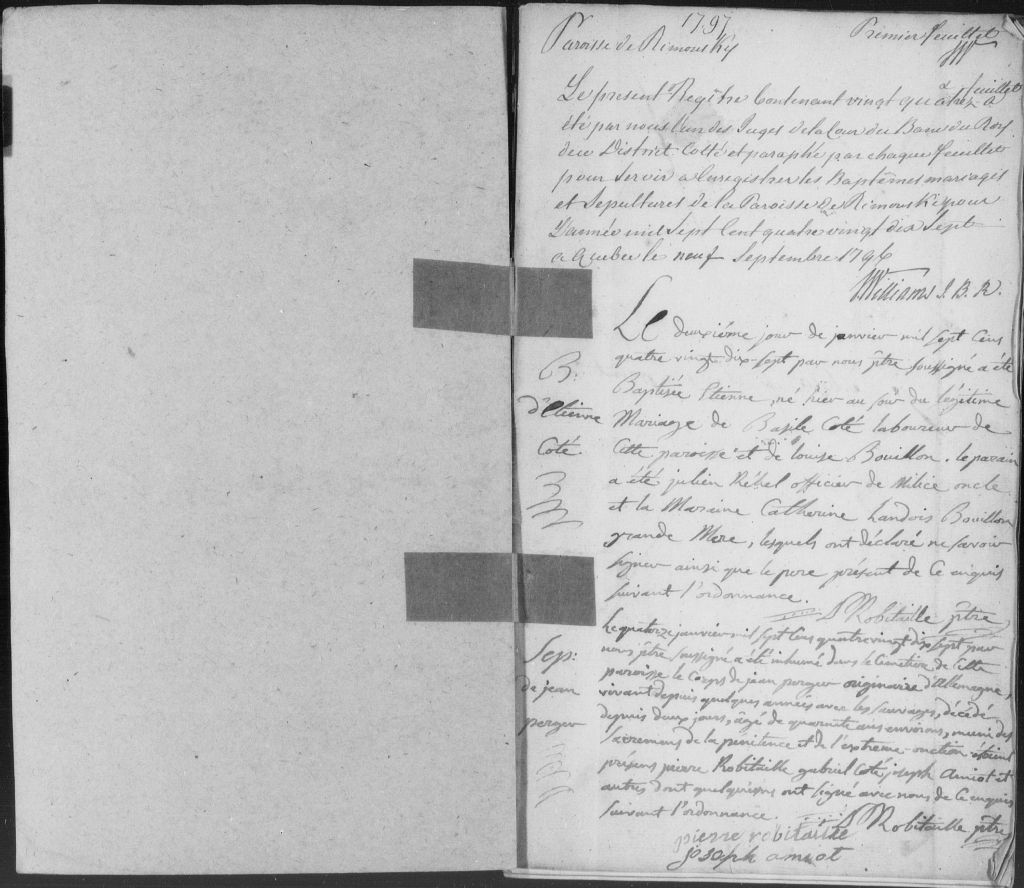 1797
Paroisse de Rimousky
Premier feuillet
JW
Le présent Registre Contenant vingt quatre feuillets a
été par nous l'un des Juges de la Cour du Banc du Roy
de ce District Cotté et paraphé par chaque feuillet
pour servir a Enregistrer les Baptêmes mariages
et Sepultures de la Paroisse de Rimousky pour
L'année mil Sept Cent quatre vingt dix Sept
a Quebec le neuf Septembre 1796
JWilliams J. B. R.
Le deuxiéme jour de janvier mil sept Cens
quatre vingt dix-sept par nous ptre soussigné a été
Baptisée Etienne, né hier au soir du légitime
Mariage de Basile Coté laboureur de
Cette paroisse et de louise Bouillon. le parain
a été julien Réhel officier de Milice oncle
et la Maraine Catherine Landois Bouillon
grande Mere, lesquels ont déclaré ne savoir
signer ainsi que le pere présent de Ce enquis
suivant l'ordonnance.
Robitaille ptre
B:
d'Etienne
Coté.
Le quatorze janvier mil sept Cens quatre vingt dix sept par
nous ptre soussigné a été inhumé dans le Cimetiere de Cette
paroisse le Corps de jean perger originaire d'Allemagne,
vivant depuis quelques années avec les sauvages, décédé
depuis deux jours, âgé de quarante ans environs, muni des
Sacremens de la pénitence et de l'extreme-onction étoient
présens pierre Robitaille gabriel Coté, joseph Amiot et
autres dont quelquesuns ont signé avec nous de Ce enquis
suivant l'ordonnance.
Robitaille ptre
Sep:
de jean
perger
pierre robitaille
joseph amiot